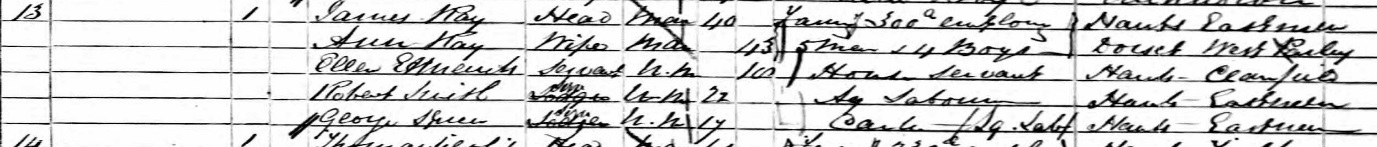 13 1 James Kay Head Mar 40 Farmg 300 a employ Hants Eastmeon
Ann Kay Wife Mar 43 5 Men & 4 Boys Dorset West Parley
Ellen Servant U.M 18 House Servant Hants - Clanfield
Robert Smith Lodger U.M 22 Ag Labourer Hants - Eastmeon
George Lodger U.M 17 Carter (Ag. Lab) Hants - Eastmeon
14 1 Head